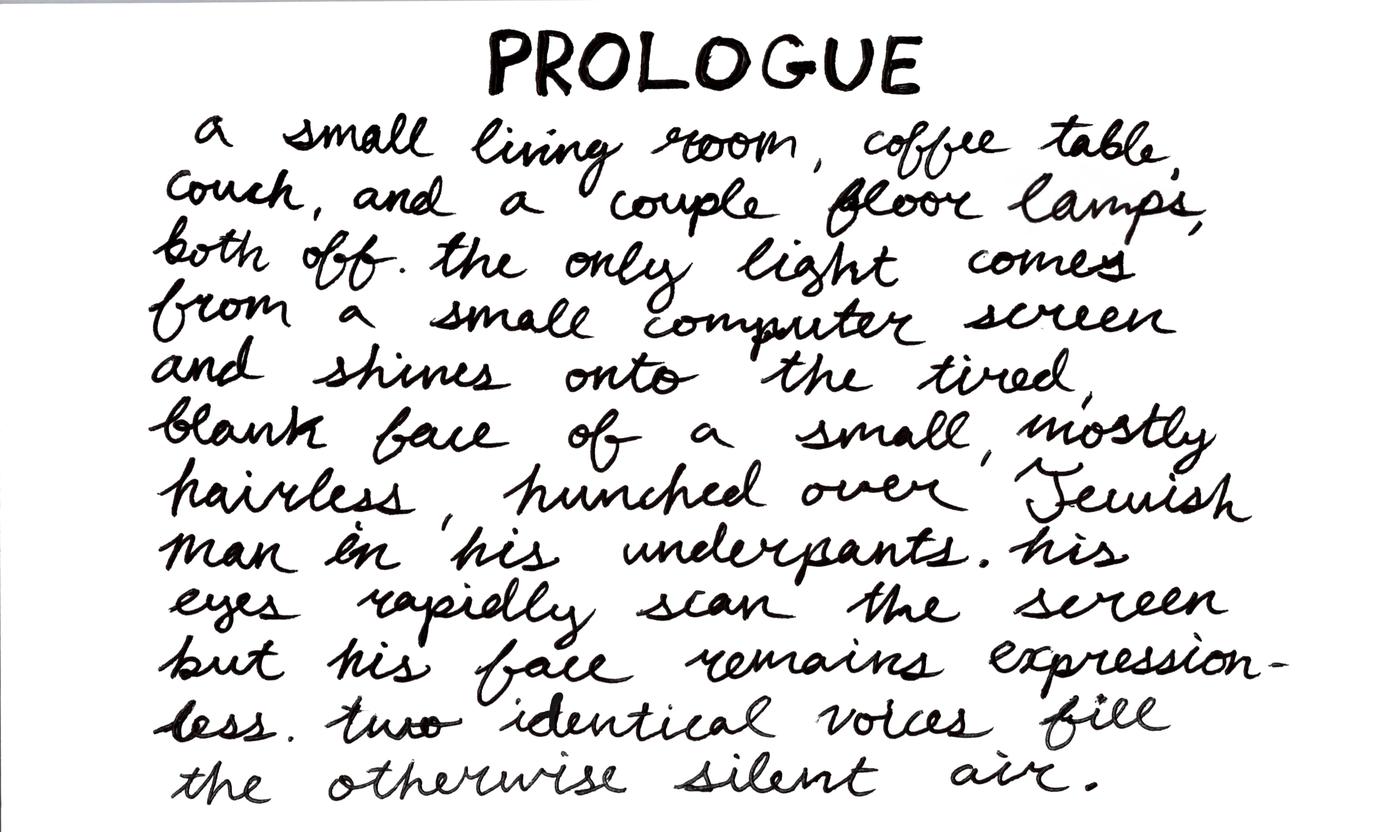 PROLOGUE
a small living room, coffee table,
couch, and a couple floor lamps,
both off. the only light comes
from a small computer screen
and shines onto the tired,
blank face of a small, mostly
hairless, hunched over Jewish
man in his underpants. his
eyes rapidly scan the screen
but his face remains expression-
less. two identical voices fill
the otherwise silent air.